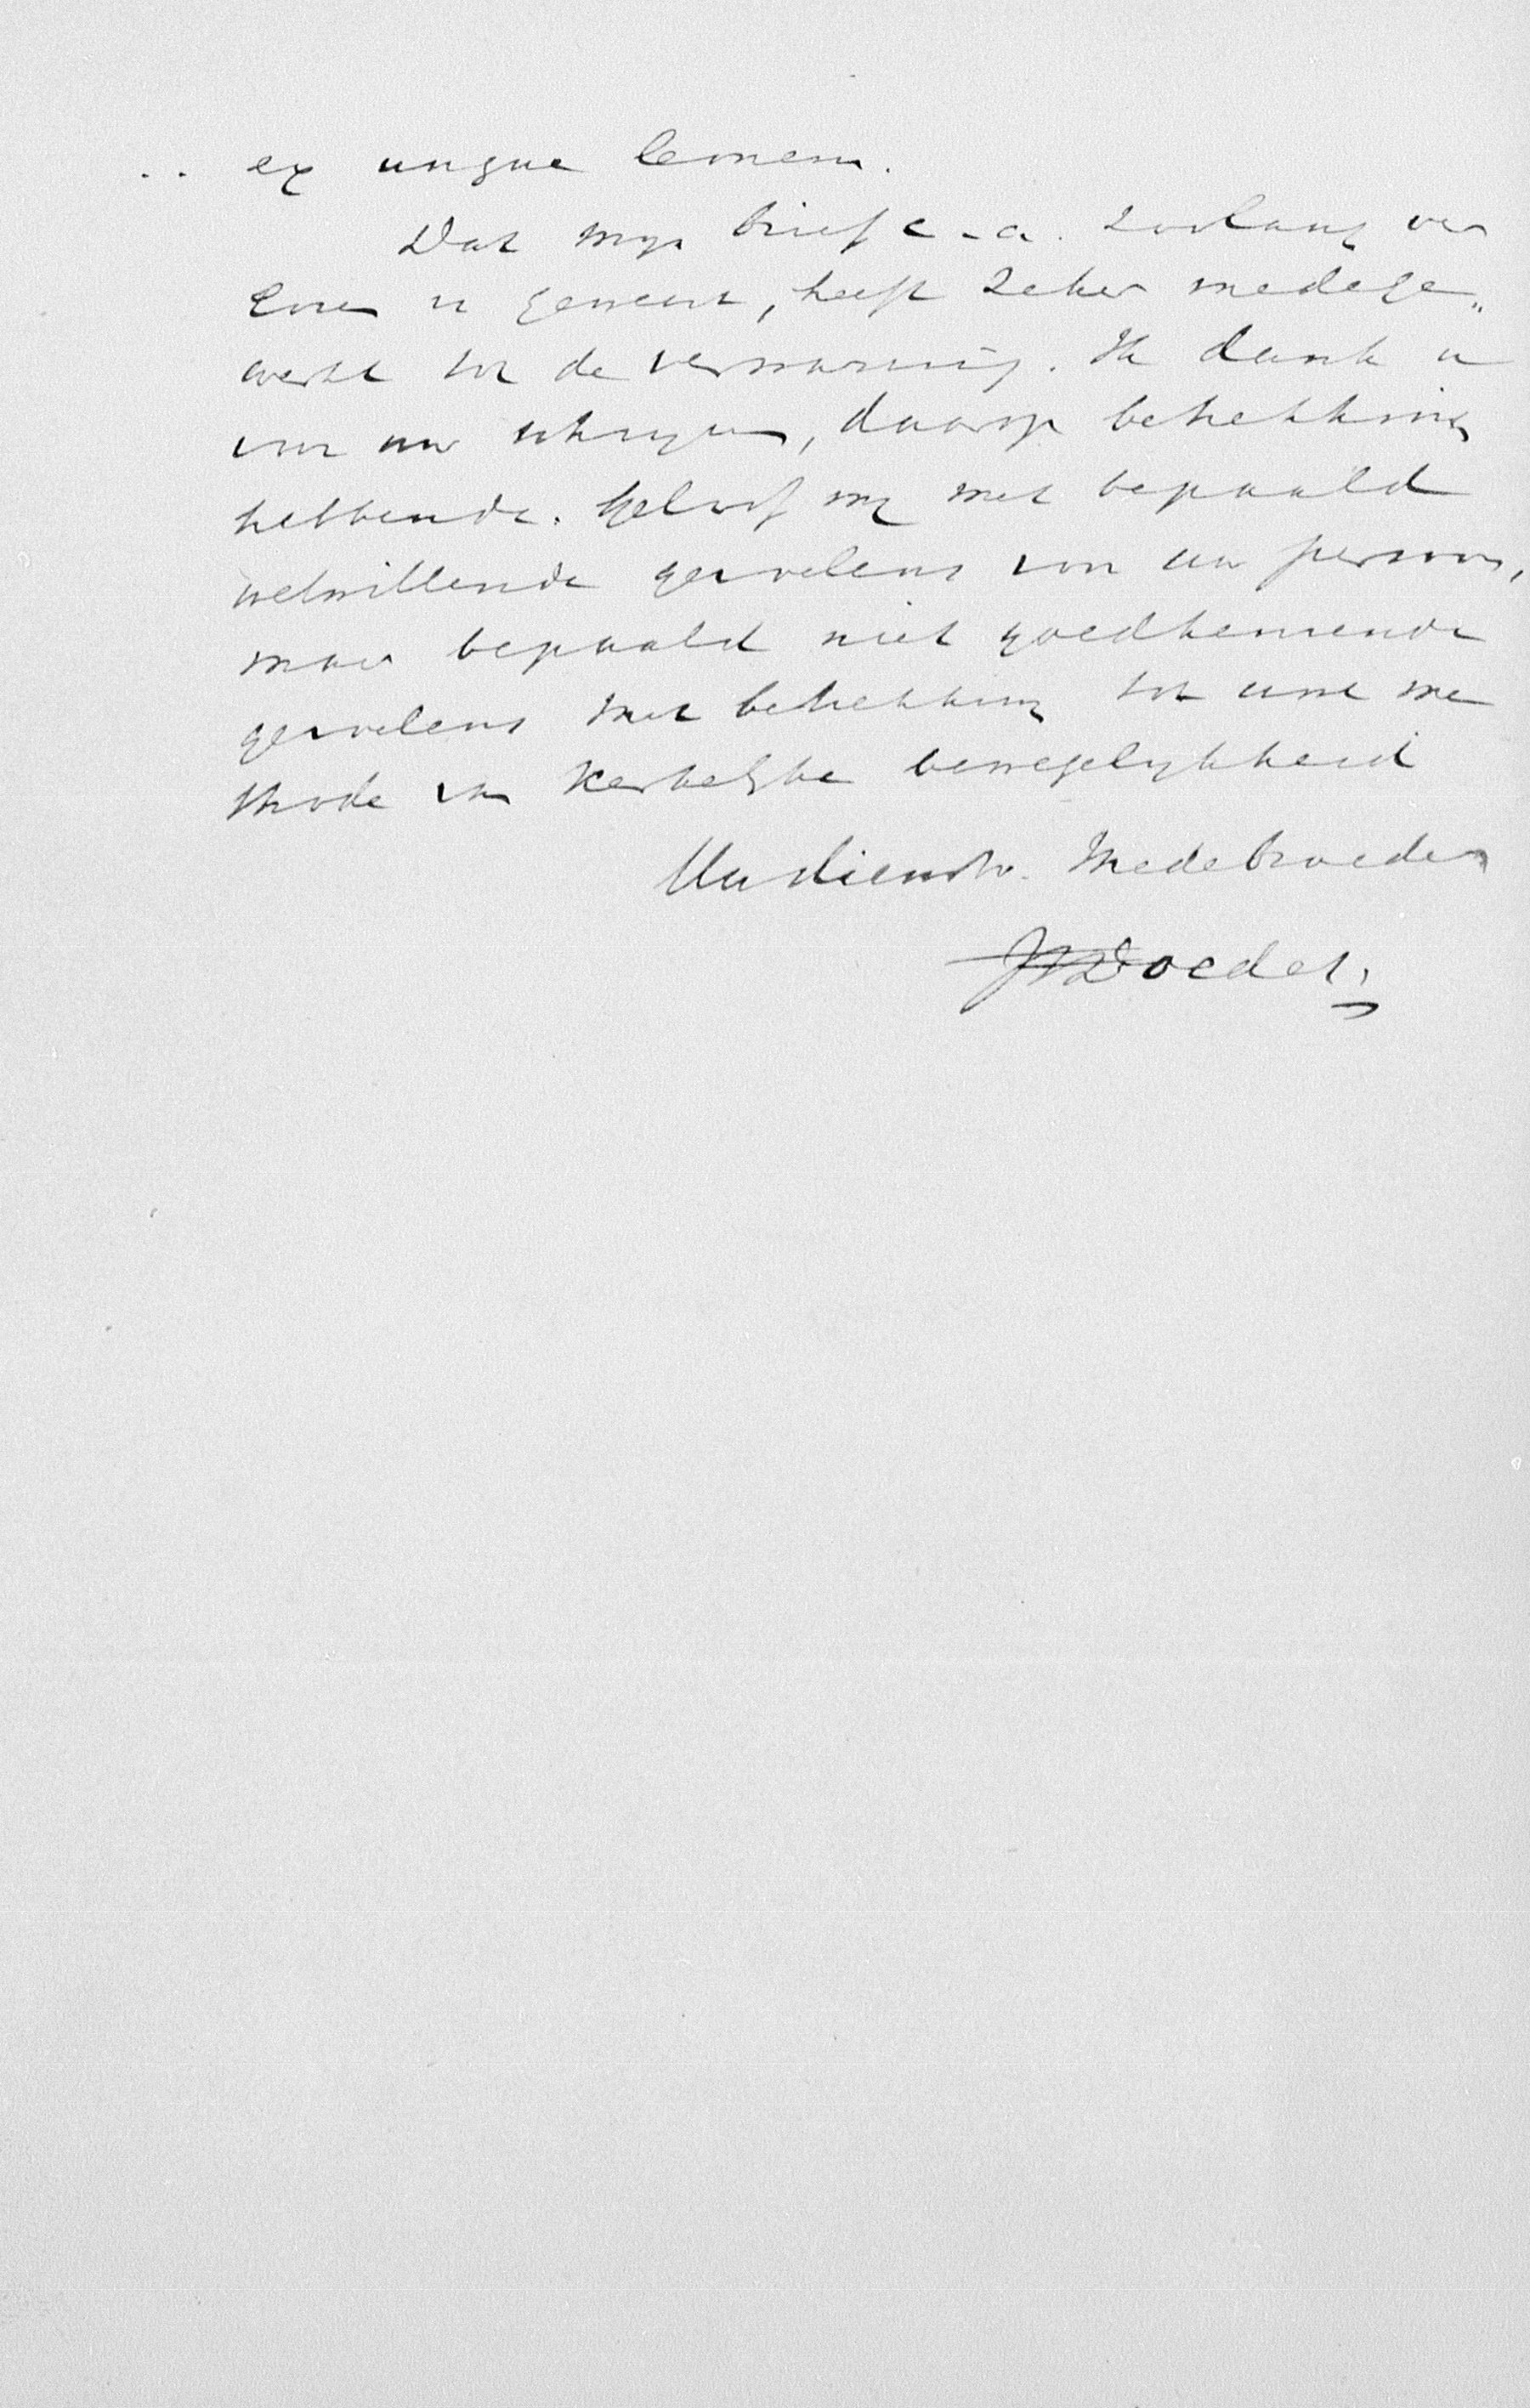 .. ex ungue leonem.
Dat mijn brief c.a. zoolang ver
loren is geweest, heeft zeker medege„
werkt tot de verwarring. Ik dank u
voor uw schrijven, daarop betrekking
hebbende. Geloof mij met bepaald
welwillende gevoelens voor uw persoon,
maar bepaald niet goedkeurende
gevoelens met betrekking tot uwe me
thode van kerkelijke bewegelijkheid
Uw dienstw. Medebroeder
JIDoedes.